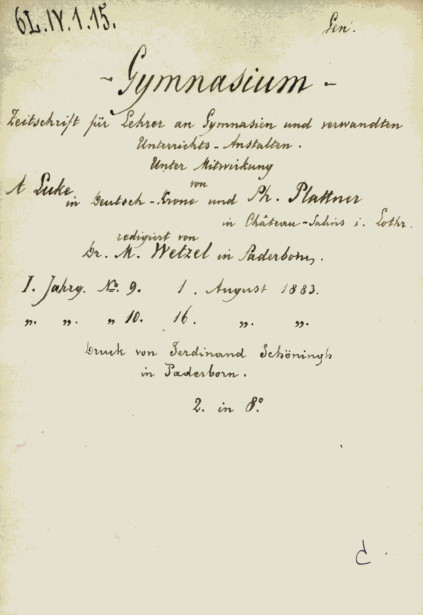 6L.IV.1.15.
Gen.
- Gymnasium -
Zeitschrift für Lehrer an Gymnasien und verwandten
Unterrichts-Anstalten.
Unter Mitwirkung
von
A Luke in Deutsch-Krone und Ph. Plattner
in Château-Salins i. Lothr.
redigiert von
Dr. M. Wetzel in Paderborn,
I. Jahrg. No. 9. 1. August 1883.
„ „ „ 10. 16. „ „
Druck von Ferdinand Schöningh
in Paderborn.
2. in 8°.